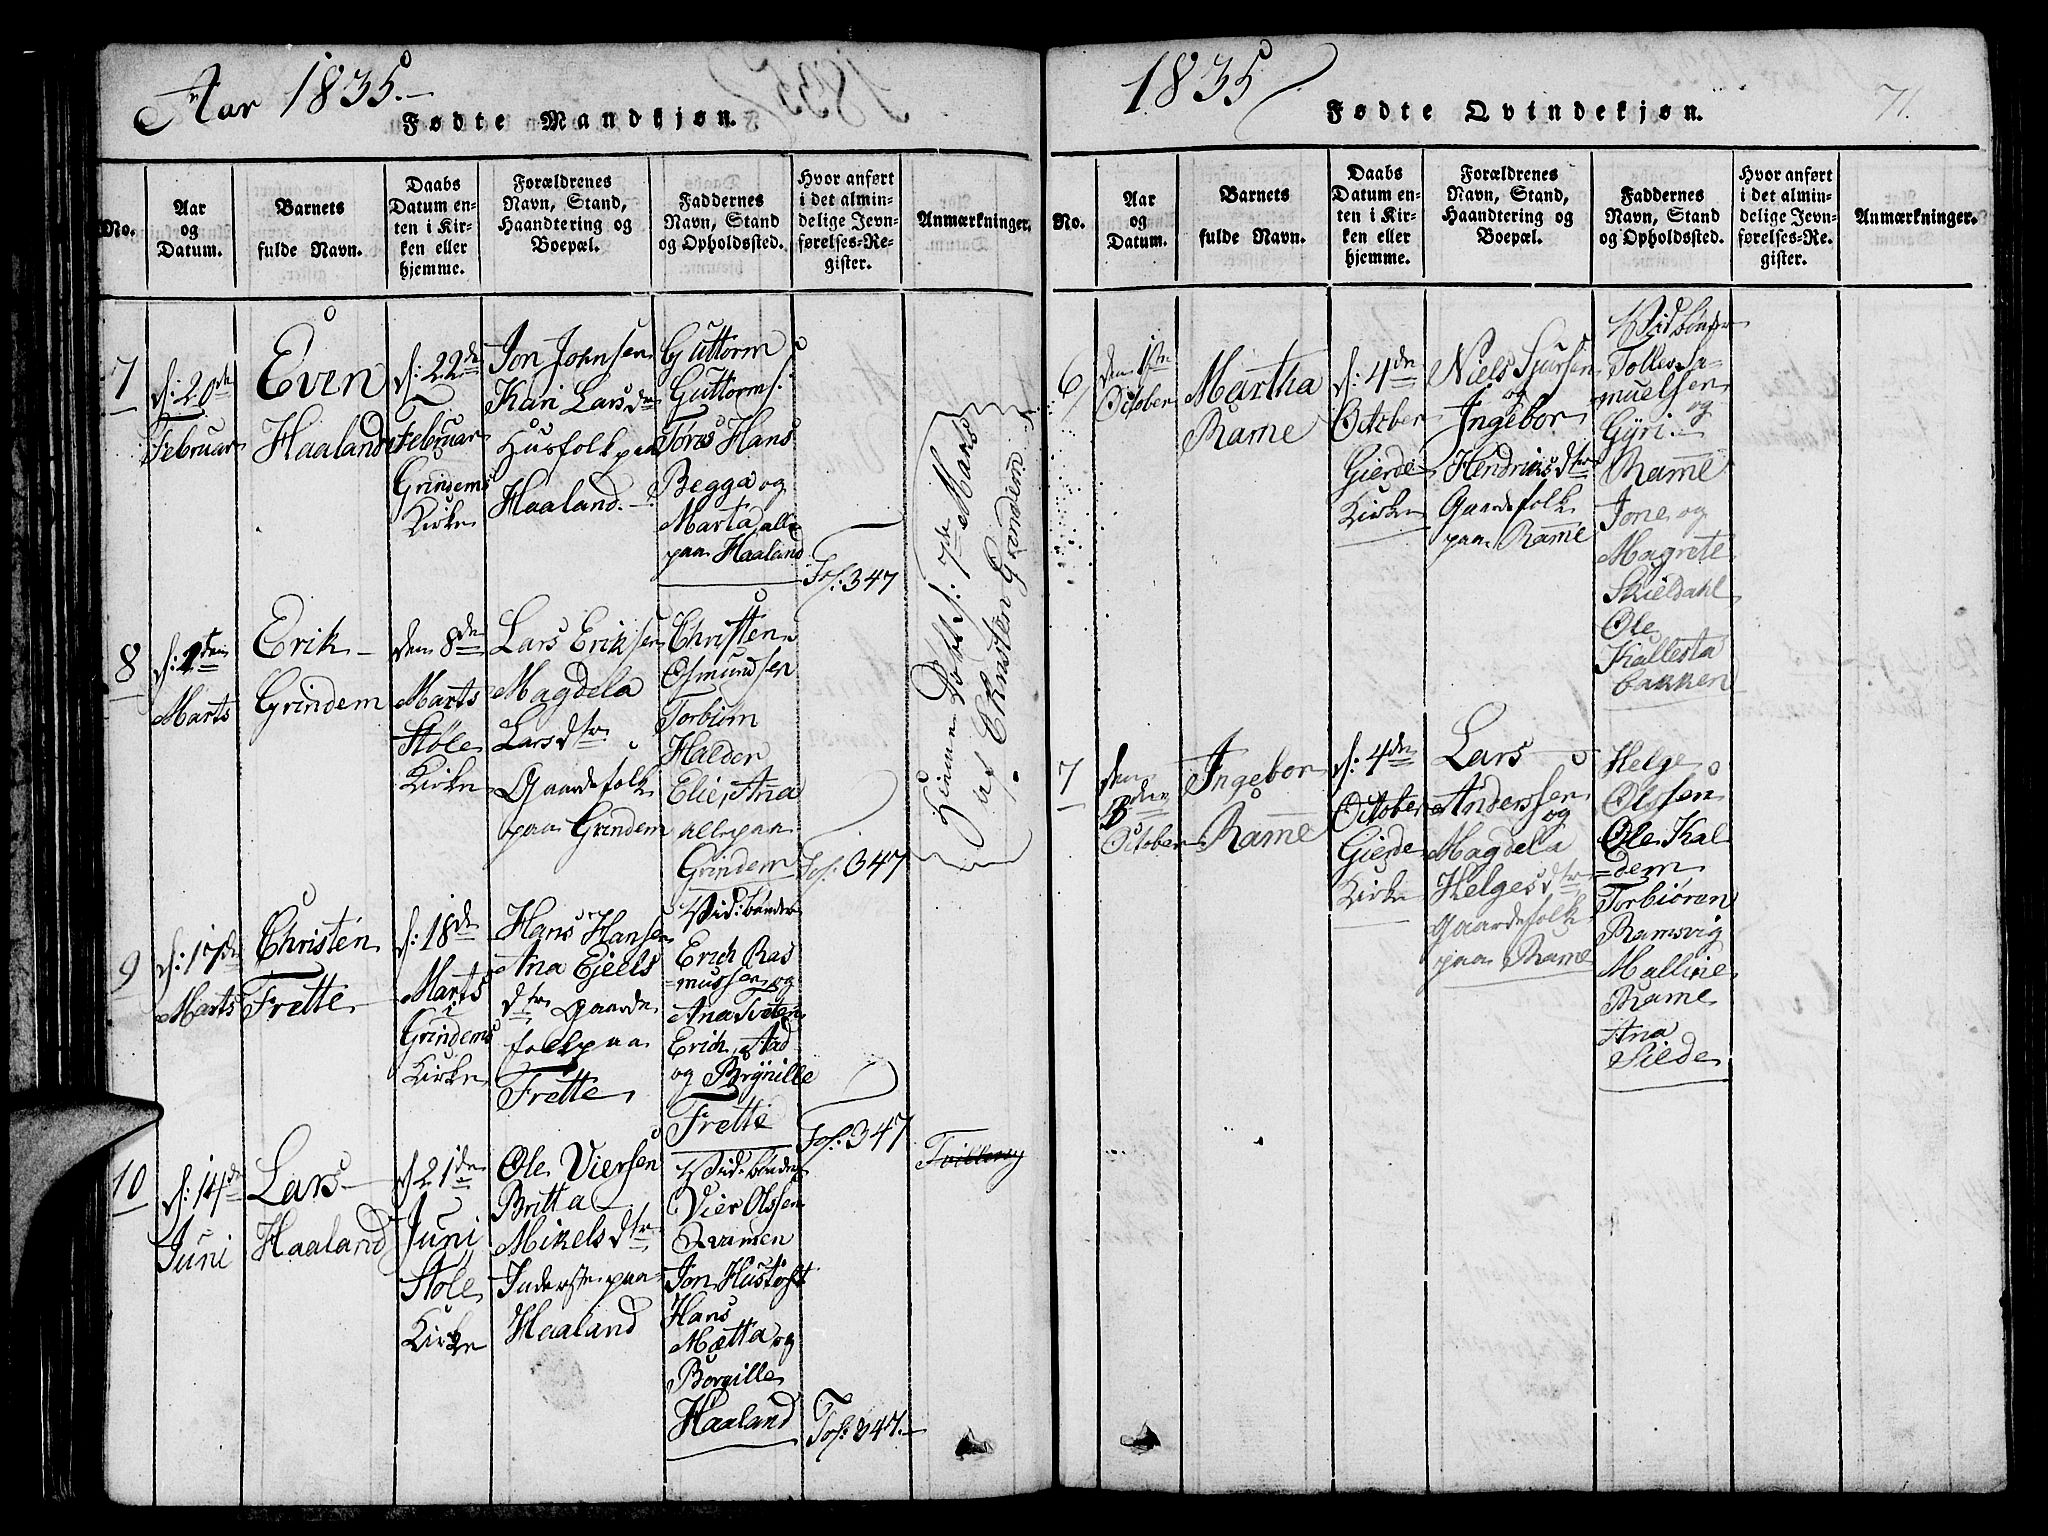 Aar 1835.
Fødte Mandkjøn.
No.
Aar
og
Datum.
Barnets
fulde Navn.
Daabs
Datum en-
ten i Kir-
ken eller
hjemme.
Forældrenes
Navn, Stand,
Haandtering og
Boepæl.
Faddernes
Navn, Stand
og Opholdssted.
Hvor anført
i det almin-
delige Jevn-
førelses-Re-
gister.
Anmærkninger.
7
d: 20de
Februar
Even
Haaland
d: 22de
Februar
Grindems
Kirke
Jon Johnsen
Kari Larsdtr
Husfolk paa
Haaland.
Guttorm
Guttorms.
Hans
Begga og
Marta alle
paa Haaland
Fol: 347
8
Marts
Erik
Grindem
den 8de
Marts
Støle
Kirke
Lars Eriksen
Magdela
Larsdtr
Gaardefolk
paa Grindem
Christen
Osmundsen
Torbiørn
Halder
Elie, Ana
alle paa
Grindem
Fol: 347
Hjemme Døbt d: 7de Marts
af Christen Grindem
9
d: 17de
Marts
Christen
Frette
d: 18de
Marts
i
Grindems
Kirke
Hans Hansen
Ana Ejells
dtr Gaarde
folk paa
Frette
Vid: bønder
Erich Ras
=mussen og
Ana Tveten
Erich, Aad
og Brÿnille
Frette
Fol: 347
10
d: 14de
Juni
Lars
Haaland
d 21de
Juni
Støle
Kirke
Ole Viersen
Britta
Mikelsdtr
Inderste paa
Haaland
Vid: bønder
Vier Olssen
Qvamen
Jon Hustoft
Hans
Mætta og
Borgille
Haaland
Fol: 347.
1835
Fødte Qvindekjøn.
71.
No.
Aar
og
Datum.
Barnets
fulde Navn.
Daabs
Datum en-
ten i Kir-
ken eller
hjemme.
Forældrenes
Navn, Stand,
Haandtering og
Boepæl.
Faddernes
Navn, Stand
og Opholdssted.
Hvor anført
i det almin-
delige Jevn-
førelses-Re-
gister.
Anmærkninger.
6
den 1ste
October
Martha
Rame
d: 4de
October
Gierde
Kirke
Niels Sjursen
og
Ingebor
Hendriksdtr
Gaardefolk
paa Rame
Vidbønder
Tolle Sa-
muelsen
og
Gÿri
Rame
Jone og
Magrete
Skieldahl
Ole
Kallesta
bakken
7
den
October
Ingebor
Rame
d: 4de
October
Gierde
Kirke
Lars
Anderssen
og
Magdela
Helgesdtr
Gaardefolk
paa Rame
Helge
Olssen
Ole Kal
=dem
Torbiøren
Ramsvig
Malline
Rame
Ana
Silde